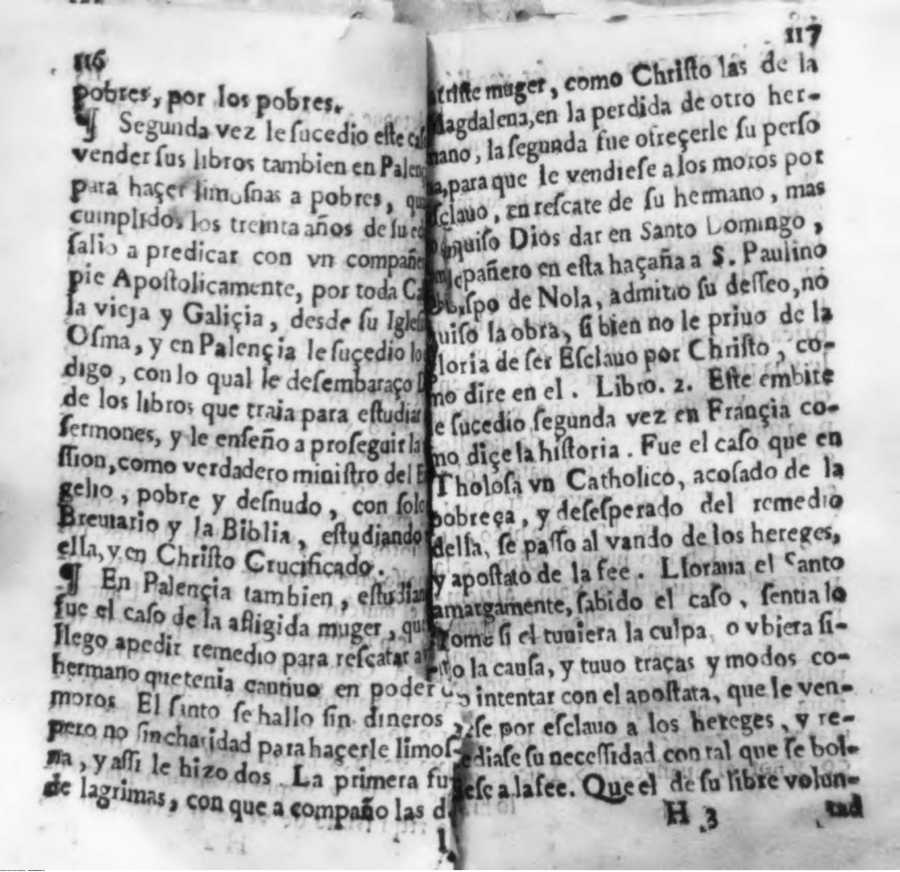 116
pobres, por los pobres.
¶ Segunda vez le sucedio este
vender sus libros tambien en
para haçer limosnas a pobres,
cumplidos los treinta años de su
salio a predicar con vn
pie Apostolicamente, por toda
la vieja y Galiçia, desde su
Osma, y en Palençia le sucedio
digo, con lo qual le desembaraço
de los libros que traia para estudiar
sermones, y le enseño a proseguir la
ssion, como verdadero ministro del
gelio, pobre y desnudo, con solo
Breuiario y la Biblia, estudiando
ella, y en Christo Crucificado.
¶ En Palençia tambien,
fue el caso de la afligida muger,
llego apedir remedio para rescatar
hermano que tenia cautiuo en poder
moros El santo se hallo sin dineros,
pero no sin charidad para haçerle
na, y assi le hizo dos La primera
de lagrimas, con que a compaño las
117
triste muger, como Christo las de la
Magdalena, en la perdida de otro her-
mano; la segunda fue ofreçerle su perso
na, para que le vendiese a los moros por
esclauo, en rescate de su hermano, mas
quiso Dios dar en Santo Domingo,
pañero en esta haçaña a S. Paulino
spo de Nola, admitio su desseo, no
uiso la obra, si bien no le priuo de la
loria de ser Esclauo por Christo, co-
mo dire en el. Libro. 2. Este embite
e sucedio segunda vez en Françia co-
mo diçe la historia. Fue el caso que en
Tholosa vn Catholico, acosado de la
pobreça, y desesperado del remedio
della, se passo al vando de los hereges,
y apostato de la fee. Lloraua el Santo
amargamente, sabido el caso, sentia lo
como si el tuuiera la culpa, o vbiera si-
do la causa, y tuuo traças y modos co-
intentar con el apostata, que le ven-
ese por esclauo a los hereges, y re-
ediase su necessidad con tal que se bol-
iese a la fee. Que el de su libre volun-
H 3 tad